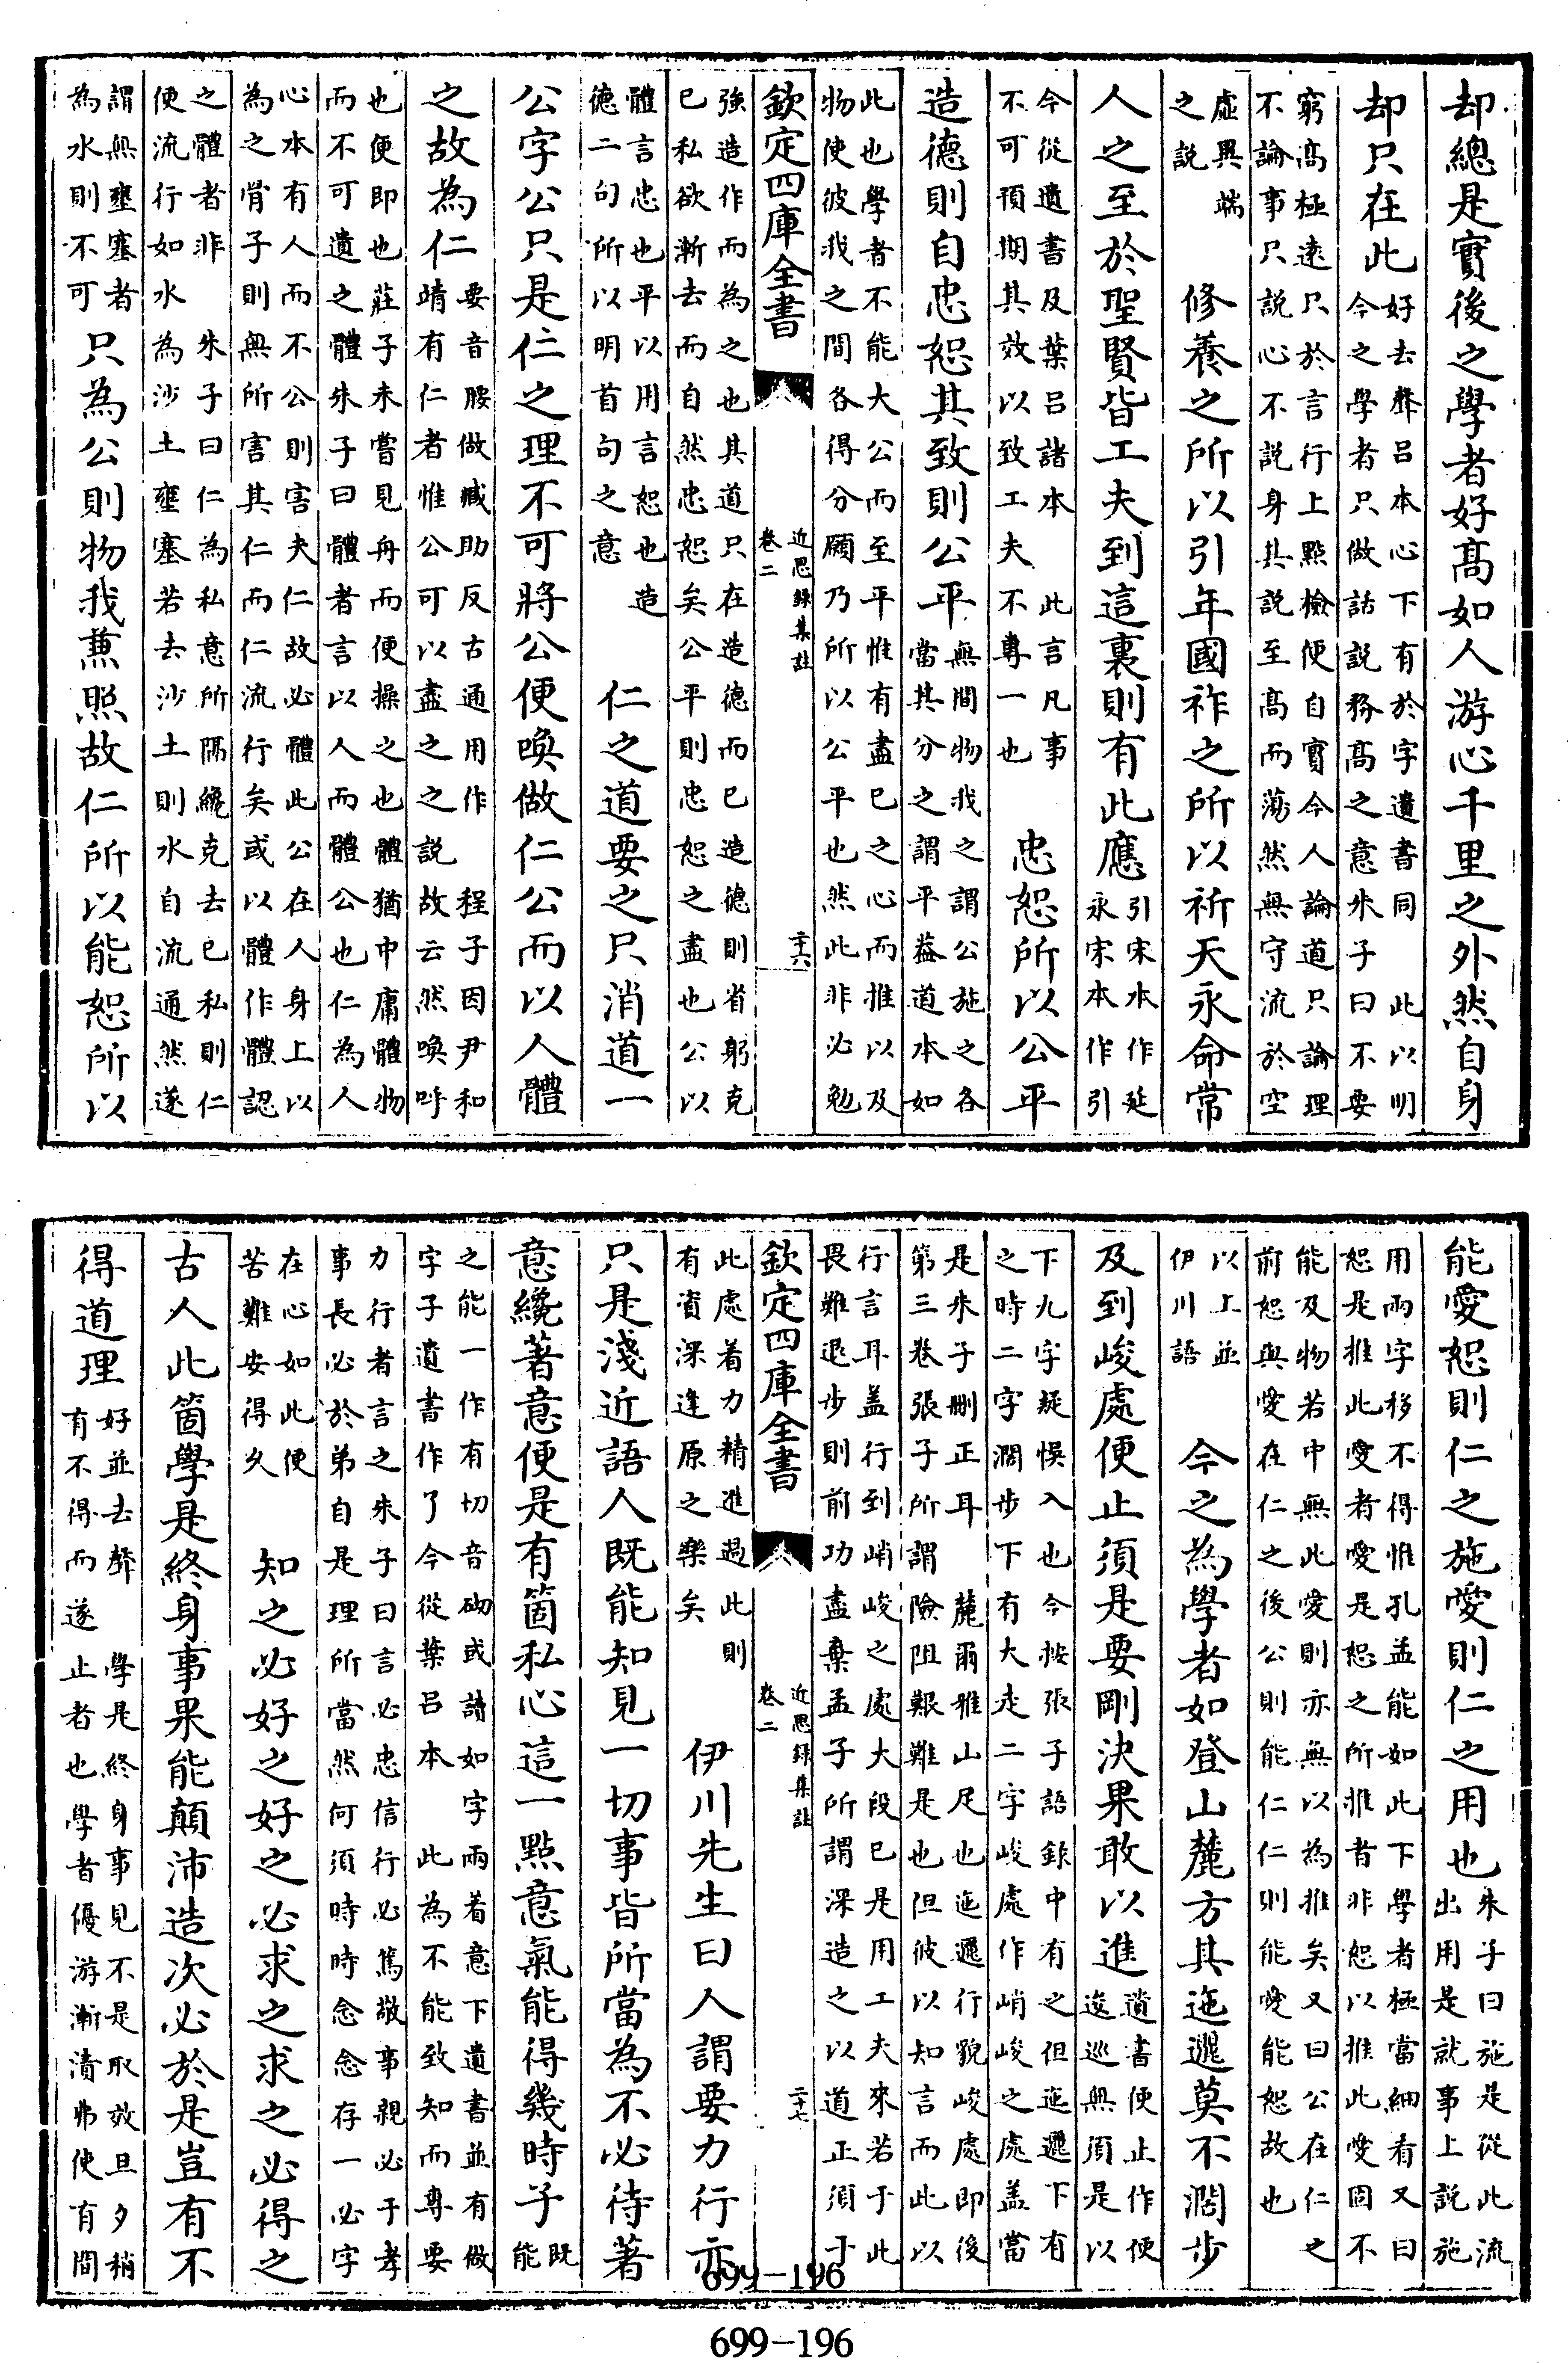 却總是實後之學者好髙如人游心千里之外然自身
却只在此
好去聲吕本心下有於字遺書同　此以明
今之學者只做話説務髙之意朱子曰不要
窮髙極逺只於言行上㸃檢便自實今人論道只論理
不論事只説心不説身其説至髙而蕩然無守流於空
虛異端
之説
修養之所以引年國祚之所以祈天永命常
人之至於聖賢皆工夫到這裏則有此應
引宋本作延
永宋本作引
今從遺書及葉吕諸本　此言凡事
不可預期其效以致工夫不專一也
忠恕所以公平
造德則自忠恕其致則公平
無間物我之謂公施之各
當其分之謂平葢道本如
此也學者不能大公而至平惟有盡已之心而推以及
物使彼我之間各得分願乃所以公平也然此非必勉
欽定四庫全書
近思録集註
卷二
二十六
強造作而為之也其道只在造德而已造德則省躬克
已私欲漸去而自然忠恕矣公平則忠恕之盡也公以
體言忠也平以用言恕也造
德二句所以明首句之意
仁之道要之只消道一
公字公只是仁之理不可將公便喚做仁公而以人體
之故為仁
要音腰做臧助反古通用作　程子因尹和
靖有仁者惟公可以盡之之説故云然喚呼
也便即也莊子未嘗見舟而便操之也體猶中庸體物
而不可遺之體朱子曰體者言以人而體公也仁為人
心本有人而不公則害夫仁故必體此公在人身上以
為之骨子則無所害其仁而仁流行矣或以體作體認
之體者非　朱子曰仁為私意所隔纔克去已私則仁
便流行如水為沙土壅塞若去沙土則水自流通然遂
謂無壅塞者
為水則不可
只為公則物我兼照故仁所以能恕所以
能愛恕則仁之施愛則仁之用也
朱子曰施是從此流
出用是就事上説施
用兩字移不得惟孔孟能如此下學者極當細看又曰
恕是推此愛者愛是恕之所推者非恕以推此愛固不
能及物若中無此愛則亦無以為推矣又曰公在仁之
前恕與愛在仁之後公則能仁仁則能愛能恕故也
以上並
伊川語
今之為學者如登山麓方其迤邐莫不濶步
及到峻處便止須是要剛決果敢以進
遺書便止作便
逡巡無須是以
下九字疑悞入也今按張子語録中有之但迤邐下有
之時二字濶步下有大走二字峻處作峭峻之處葢當
是朱子刪正耳　麓爾雅山足也迤邐行貌峻處即後
第三卷張子所謂險阻艱難是也但彼以知言而此以
行言耳葢行到峭峻之處大段已是用工夫來若于此
畏難退步則前功盡棄孟子所謂深造之以道正須于
欽定四庫全書
近思録集註
卷二
二十七
此處着力精進過此則
有資深逢原之樂矣
伊川先生曰人謂要力行亦
只是淺近語人既能知見一切事皆所當為不必待著
意纔著意便是有箇私心這一點意氣能得幾時子
既
能
之能一作有切音砌或讀如字兩着意下遺書並有做
字子遺書作了今從葉吕本　此為不能致知而専要
力行者言之朱子曰言必忠信行必篤敬事親必于孝
事長必於弟自是理所當然何須時時念念存一必字
在心如此便
苦難安得久
知之必好之好之必求之求之必得之
古人此箇學是終身事果能顛沛造次必於是豈有不
得道理
好並去聲
有不得而遂
學是終身事見不是取效旦夕稍
止者也學者優游漸漬弗使有間
699-196
699-196